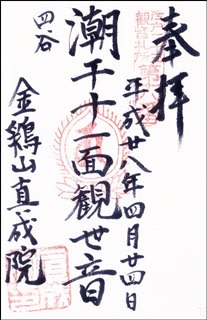 奉拝
平成廿八年四月廿四日
潮干十一面観世音
四谷
金鶏山真成院